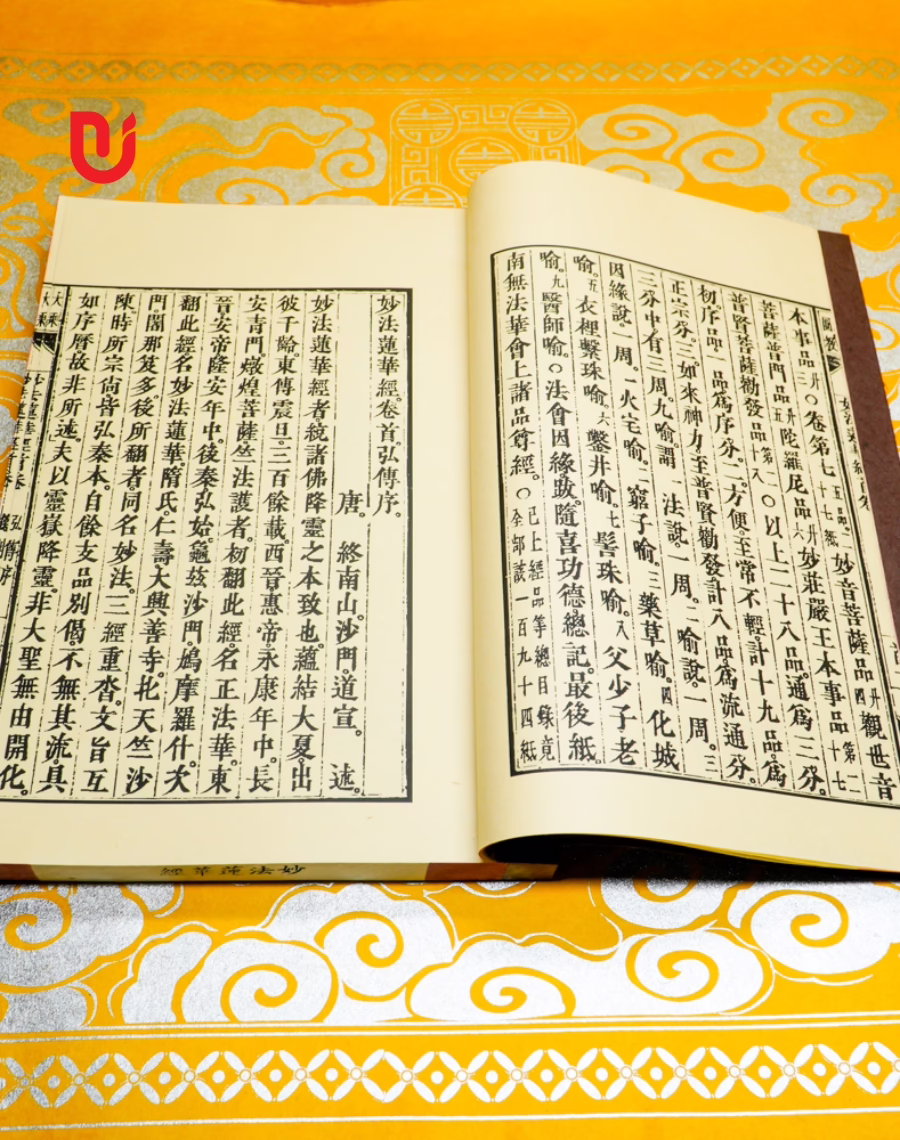 本事品廿三○卷第七五品七十七紙。妙音菩薩品廿四觀世音
菩薩普門品廿五陀羅尼品廿六妙莊嚴王本事品
普賢菩薩勸發品○以上二十八品。通爲三分。
初序品。一品爲序分。二方便。至常不輕。計十九品。爲
正宗分。三如來神力。至普賢勸發。計八品。爲流通分。
三分中有三周。九喻。謂一法說。一周。二喻說。一周。三
因緣說。一周。一火宅喻。二窮子喻。三藥草喻。四化城
喻。五衣裡繫珠喻。六鑿井喻。七髻珠喻。八父少子老
喻。九醫師喻。○法會因緣。跋。隨喜功德。總記。最後紙。
南無法華會上諸品尊經。○已上經品等總目錄竟全部該一百九十四紙
妙法蓮華經。卷首。弘傳序。
唐。終南山。沙門道宣。述。
妙法蓮華經者。統諸佛降靈之本致也。蘊結大夏。出
彼千齡。東傳震旦。三百餘載。西晉。惠帝。永康年中。長
安青門。燉煌菩薩。竺法護者。初翻此經。名正法華。東
晉安帝。隆安年中。後秦弘始。龜玆沙門。鳩摩羅什。次
翻此經。名妙法蓮華。隋氏。仁壽。大興善寺。北天竺沙
門。闍那笈多。後所翻者。同名妙法。三經重沓。文旨互
陳。時所宗尚。皆弘秦本。自餘支品別偈。不無其流。具
如序曆。故非所述。夫以靈嶽降靈。非大聖無由開化。
妙法蓮華經